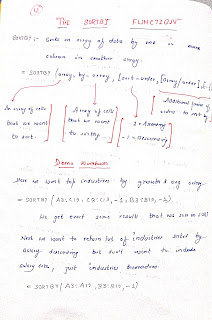 THE SORTBY FUNCTION
SORTBY :- Sorts an array of data by one or more
column in another array.
= SORTBY (array, by-array, [sort-order], [array/order],
An array of cells
that we want
to sort.
Array of cells
that we want
to sortby
1 = Ascending
-1 = Descending
Additional pairs of
to sort by
Demo
Here we want top industries by growth & avg salary.
We get exact same result that we saw in
Next we want to return list of industries sorted by
salary descending but don't want to include
salary col, just industries
= SORTBY (A3:A19, B3:B19, -1)